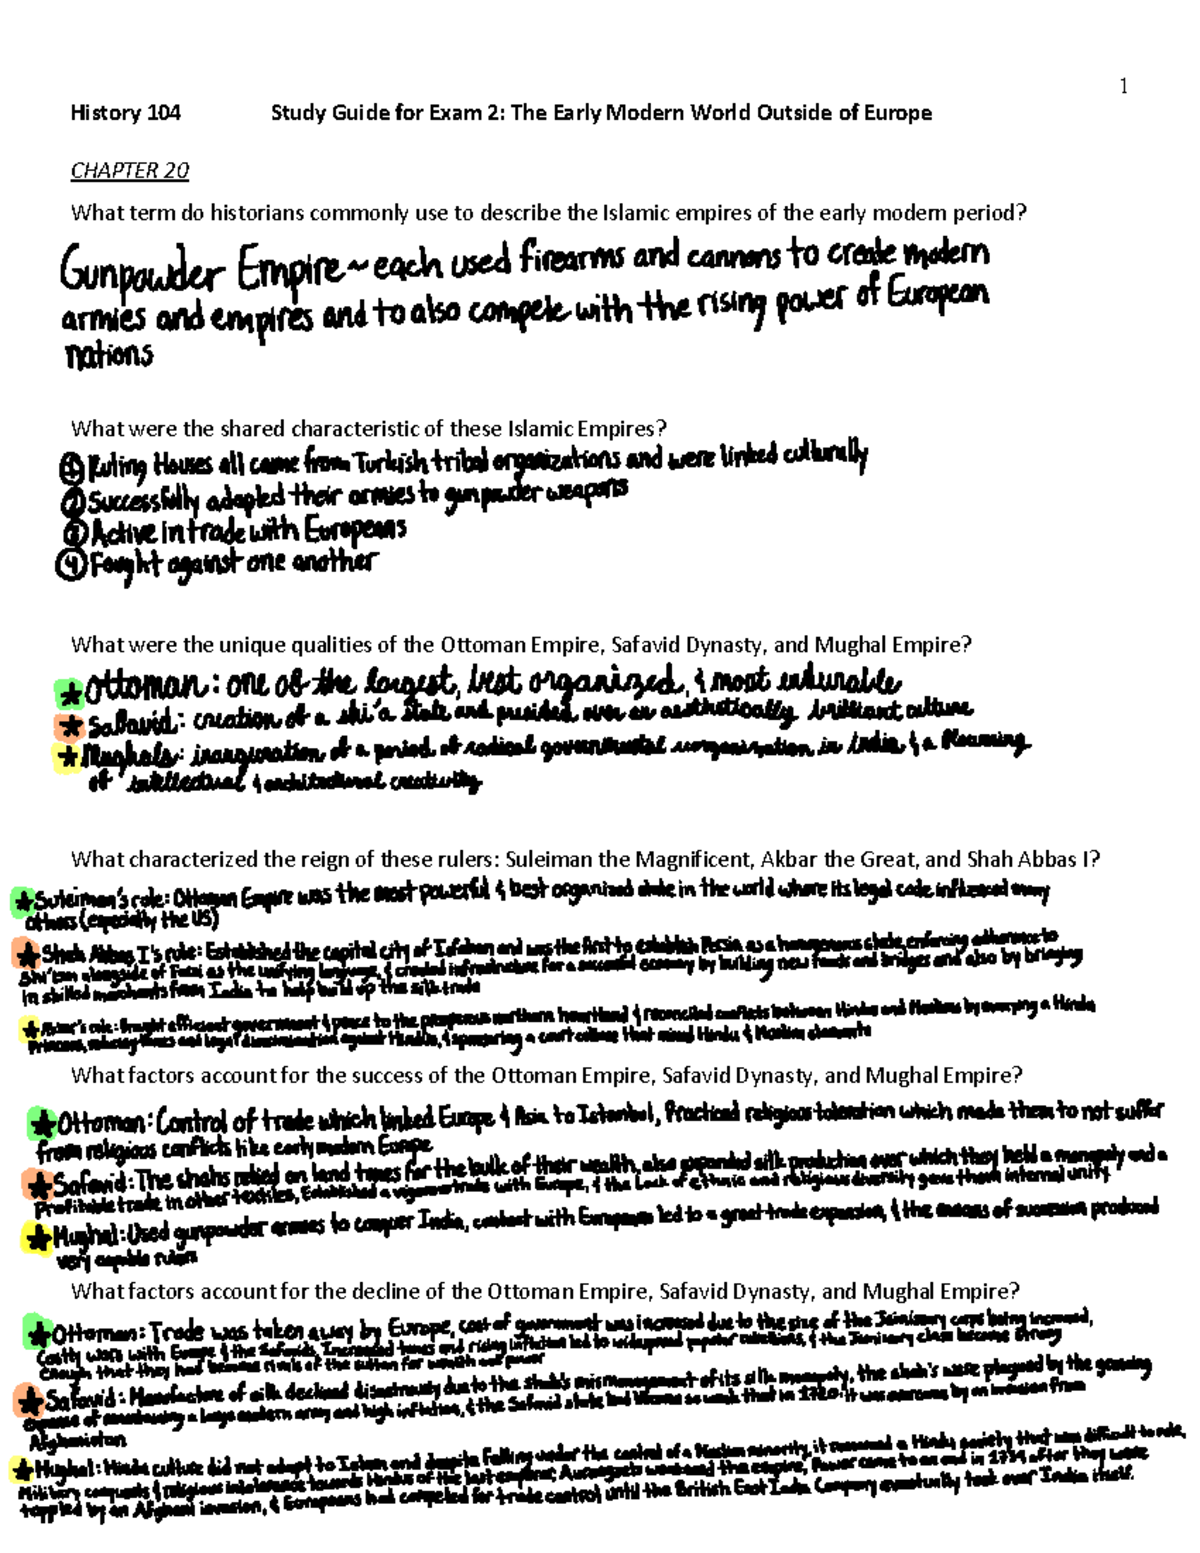 1
History 104 Study Guide for Exam 2: The Early Modern World Outside of Europe
CHAPTER 20
What term do historians commonly use to describe the Islamic empires of the early modern period?
Gunpowder Empire ~ each used firearms and cannons to create modern
armies and empires and to also compete with the rising power of European
nations
What were the shared characteristic of these Islamic Empires?
① Ruling Houses all came from Turkish tribal organizations and were linked culturally
② Successfully adapted their armies to gunpowder weapons
③ Active in trade with Europeans
④ Fought against one another
What were the unique qualities of the Ottoman Empire, Safavid Dynasty, and Mughal Empire?
★ Ottoman: one of the largest, best organized, & most endurable
★ Safavid: creation of a shi'a state and presided over an aesthetically brilliant culture
★ Mughals: inauguration of a period of radical governmental reorganization in India & a blooming
of intellectual & architectural creativity
What characterized the reign of these rulers: Suleiman the Magnificent, Akbar the Great, and Shah Abbas I?
★ Suleiman's role: Ottoman Empire was the most powerful & best organized state in the world where its legal code influenced many
others (especially the US)
★ Shah Abbas I's role: Established the capital city of Isfahan and was the first to establish Persia as a homogenous state, enforcing adherence to
Shi'ism alongside of Farsi as the unifying language, & created infrastructure for a successful economy by building new roads and bridges and also by bringing
in skilled merchants from India to help build up the silk trade
★ Akbar's role: Brought efficient government & peace to the prosperous northern heartland & reconciled conflicts between Hindus and Muslims by marrying a Hindu
Princess, reducing taxes and legal discrimination against Hindus, & sponsoring a court culture that mixed Hindu & Muslim elements
What factors account for the success of the Ottoman Empire, Safavid Dynasty, and Mughal Empire?
★ Ottoman: Control of trade which linked Europe & Asia to Istanbul, Practiced religious toleration which made them to not suffer
from religious conflicts like early modern Europe
★ Safavid: The shahs relied on land taxes for the bulk of their wealth, also expanded silk production over which they held a monopoly and a
Profitable trade in other textiles, Established a vigorous trade with Europe, & the lack of ethnic and religious diversity gave them internal unity
★ Mughal: Used gunpowder armies to conquer India, contact with Europeans led to a great trade expansion, & the means of succession produced
very capable rulers
What factors account for the decline of the Ottoman Empire, Safavid Dynasty, and Mughal Empire?
★ Ottoman: Trade was taken away by Europe, cost of government was increased due to the size of the Janissary corps being increased,
Costly wars with Europe & the Safavids, Increased taxes and rising inflation led to widespread popular rebellions, & the Janissary class became strong
enough that they had become rivals of the sultan for wealth and power
★ Safavid: Manufacture of silk declined disastrously due to the shah's mismanagement of its silk monopoly, the shah's were plagued by the growing
expense of maintaining a large modern army and high inflation, & the Safavid state had become so weak that in 1720 it was overcome by an invasion from
Afghanistan
★ Mughal: Hindu culture did not adapt to Islam and despite falling under the control of a Muslim minority, it remained a Hindu society that was difficult to rule,
Military conquests & religious intolerance towards Hindus of the last emperor, weakened the empire, Power came to an end in 1739 after they were
toppled by an Afghani invasion, & Europeans had competed for trade control until the British East India Company eventually took over India itself.